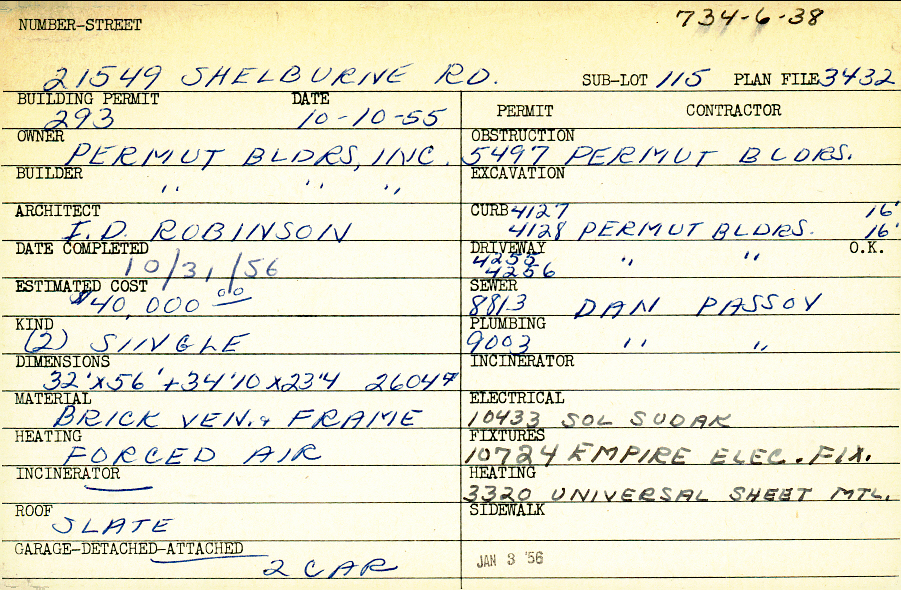 734-6-38
NUMBER-STREET
21549 SHELBURNE RD. SUB-LOT 115 PLAN FILE 3432
BUILDING PERMIT DATE
293 10-10-55
OWNER
PERMUT BLDRS, INC.
BUILDER
" " "
ARCHITECT
I.D. ROBINSON
DATE COMPLETED
10/31/56
ESTIMATED COST
$40,000 00
KIND
(2) SINGLE
DIMENSIONS
32'x56'+34'10x23'4 26047
MATERIAL
BRICK VEN. & FRAME
HEATING
FORCED AIR
INCINERATOR
ROOF
SLATE
GARAGE-DETACHED-ATTACHED
2 CAR
PERMIT CONTRACTOR
OBSTRUCTION
5497 PERMUT BLDRS.
EXCAVATION
CURB 4127 16'
4128 PERMUT BLDRS. 16'
DRIVEWAY O.K.
4255 " "
4256
SEWER
8813 DAN PASSOV
PLUMBING
9003 " "
INCINERATOR
ELECTRICAL
10433 SOL SUDAK
FIXTURES
10724 EMPIRE ELEC. FIX.
HEATING
3320 UNIVERSAL SHEET MTL.
SIDEWALK
JAN 3 '56